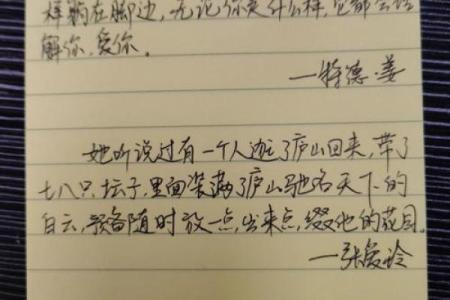 样躺在脚边，无论你是什么样，它都会理
解你、爱你。
—特德·姜
她听说过有一个人逛了庐山回来，带了
七八只坛子，里面装满了庐山驰名天下的
白云，预备随时放一点出来点缀他的花园。
—张爱玲